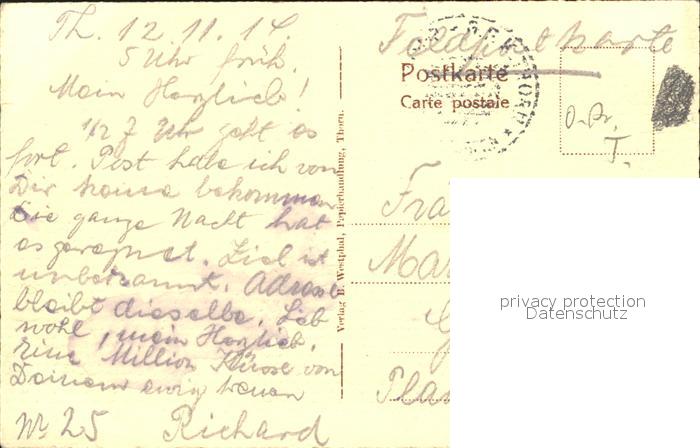 Th. 12.11.14.
5 Uhr früh.
Mein Herzlieb!
1/2 7 Uhr geht es
fort. Post habe ich von
Dir keine bekommen
Die ganze Nacht hat
es geregnet. Ziel ist
unbekannt. Adresse
bleibt dieselbe. Leb
wohl, mein Herzlieb.
Eine Million Küsse von
Deinem ewig treuen
Nr 25 Richard
Verlag B. Westphal, Papierhandlung, Thorn.
Feldpostkarte
Postkarte
Carte postale
Fra
Mar
Pla
privacy protection
Datenschutz